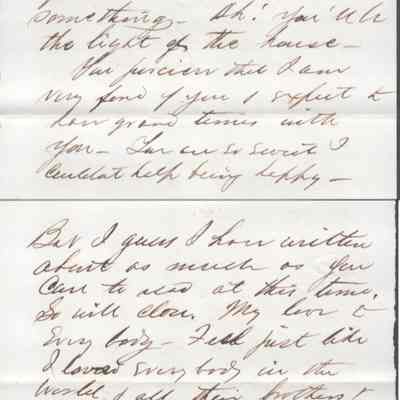 something - Oh! you'll be
the light of the house -
that I am
very fond of you I expect to
have grand times with
you - You are so sweet I
couldnt help being happy -
But I guess I have written
about as much as you
care to read at this time.
So will close. My love to
Every body - Feel just like
I loved everybody in the
world, & all their brothers &